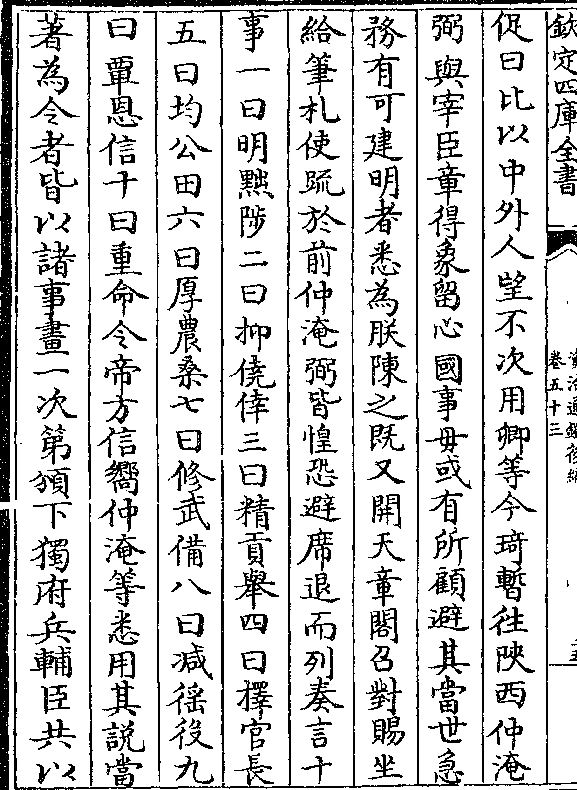 欽定四庫全書
資治通鑑後編
卷五十三
促曰比以中外人望不次用卿等今琦暫往陜西仲淹
弼與宰臣章得象留心國事毋或有所顧避其當世急
務有可建明者悉為朕陳之既又開天章閣召對賜坐
給筆札使疏於前仲淹弼皆惶恐避席退而列奏言十
事一曰明黜陟二曰抑僥倖三曰精貢舉四曰擇官長
五曰均公田六曰厚農桑七曰修武備八曰減徭役九
曰覃恩信十曰重命令帝方信嚮仲淹等悉用其說當
著為令者皆以諸事畫一次第頒下獨府兵輔臣共以